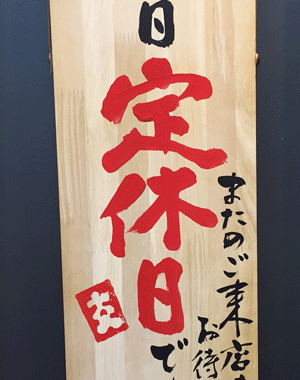 日
定休日
で
またのご来店
お待